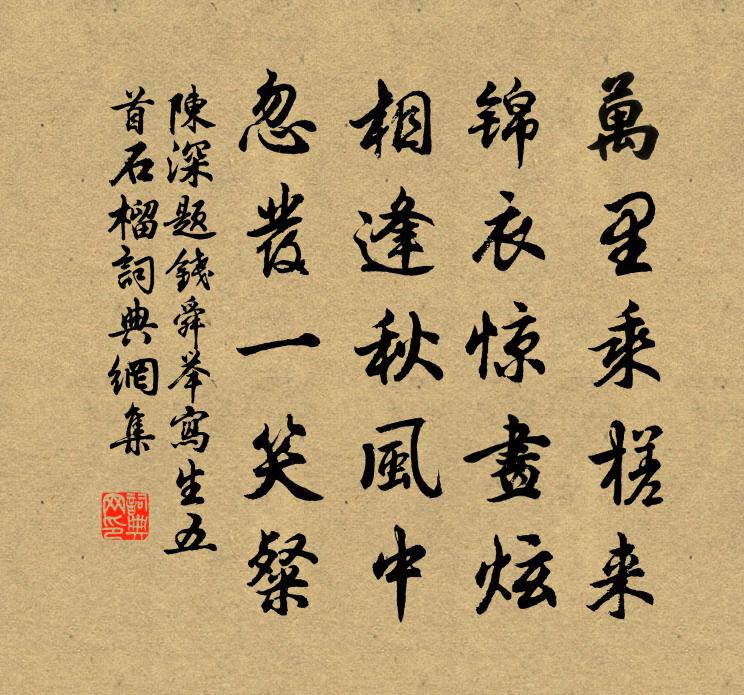 萬里乘槎来
锦衣惊晝炫
相逢秋風中
忽發一笑粲
陳深题錢舜举寫生五
首石榴詞典網集
詞典网印